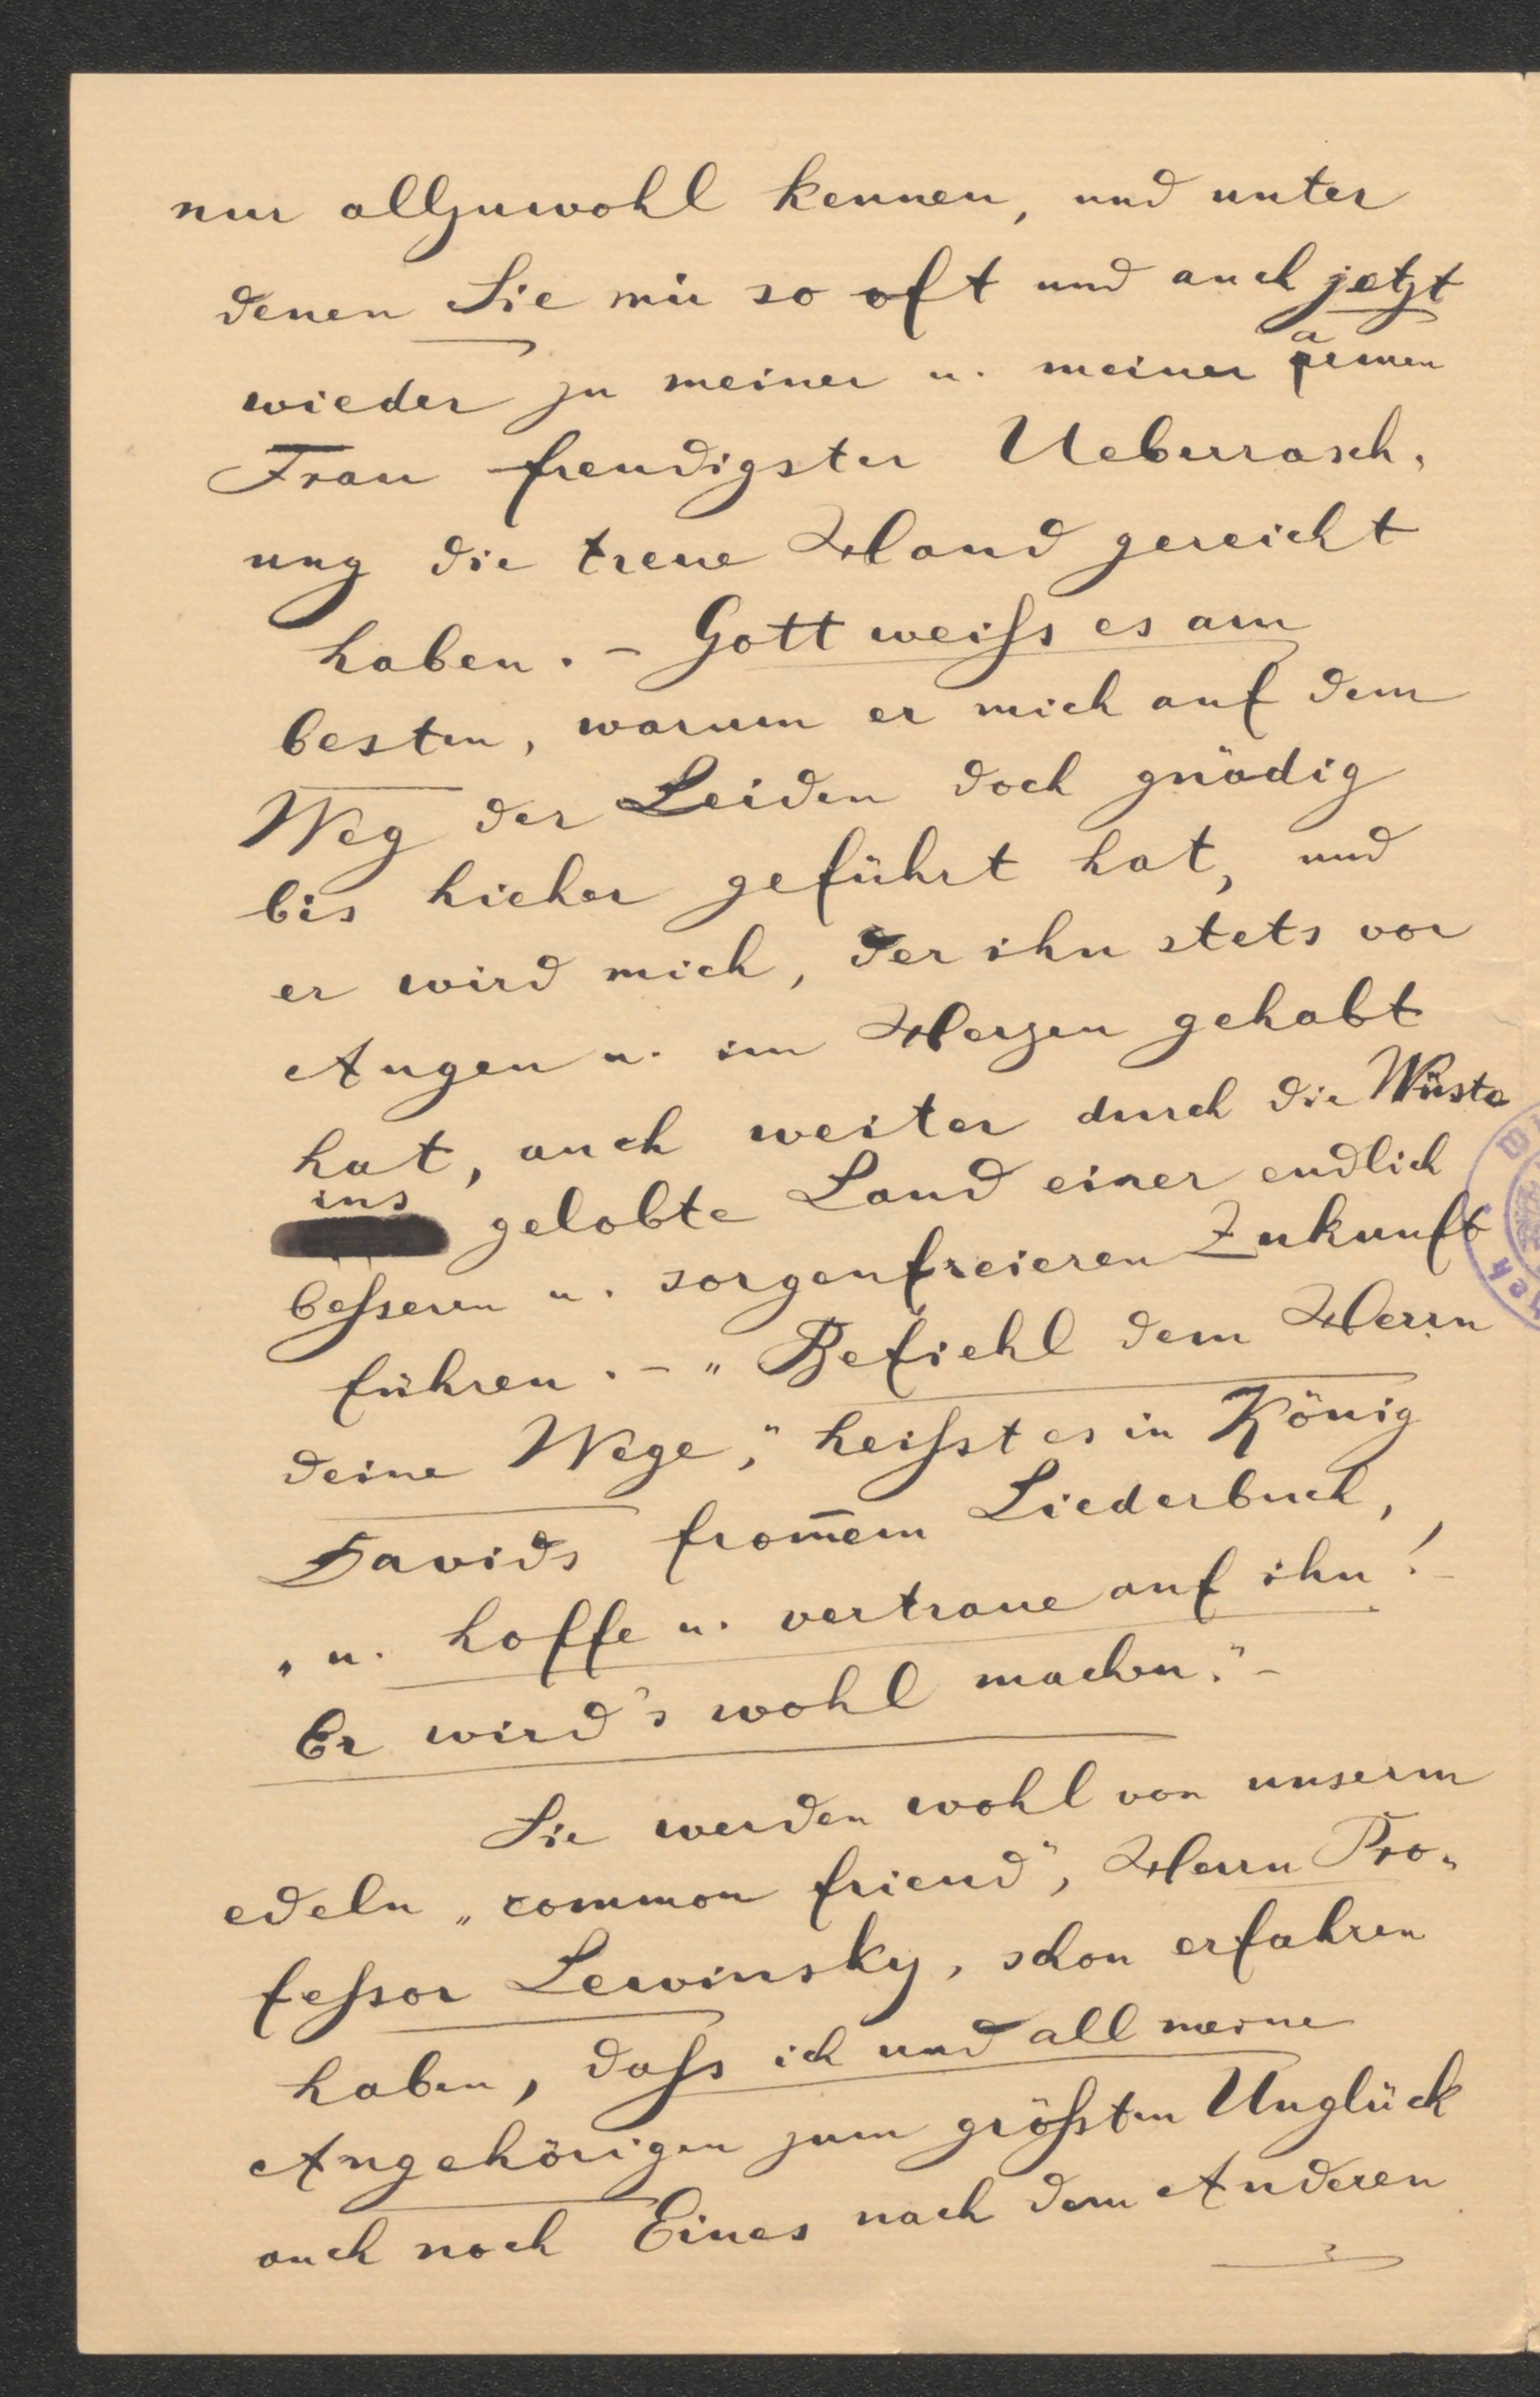 nur allzuwohl kennen, und unter
denen Sie mir so oft und auch jetzt
wieder zu meiner u. meiner armen
Frau freudigster Ueberrasch-
ung die treue Hand gereicht
haben. – Gott weiſs es am
besten, warum er mich auf dem
Weg der Leiden doch gnädig
bis hieher geführt hat, und
er wird mich, der ihn stets vor
Augen u. im Herzen gehabt
hat, auch weiter durch die Wüste
ins gelobte Land einer endlich
beſseren u. sorgenfreieren Zukunft
führen. – „Befiehl dem Herrn
deine Wege," heiſst es in König
Davids from̄em Liederbuch,
„u. hoffe u. vertraue auf ihn! –
Er wird's wohl machen." –
Sie werden wohl von unserm
edeln „common friend", Herrn Pro-
feſsor Lewinsky, schon erfahren
haben, daſs ich und all meine
Angehörigen zum gröſsten Unglück
auch noch Eines nach dem Anderen